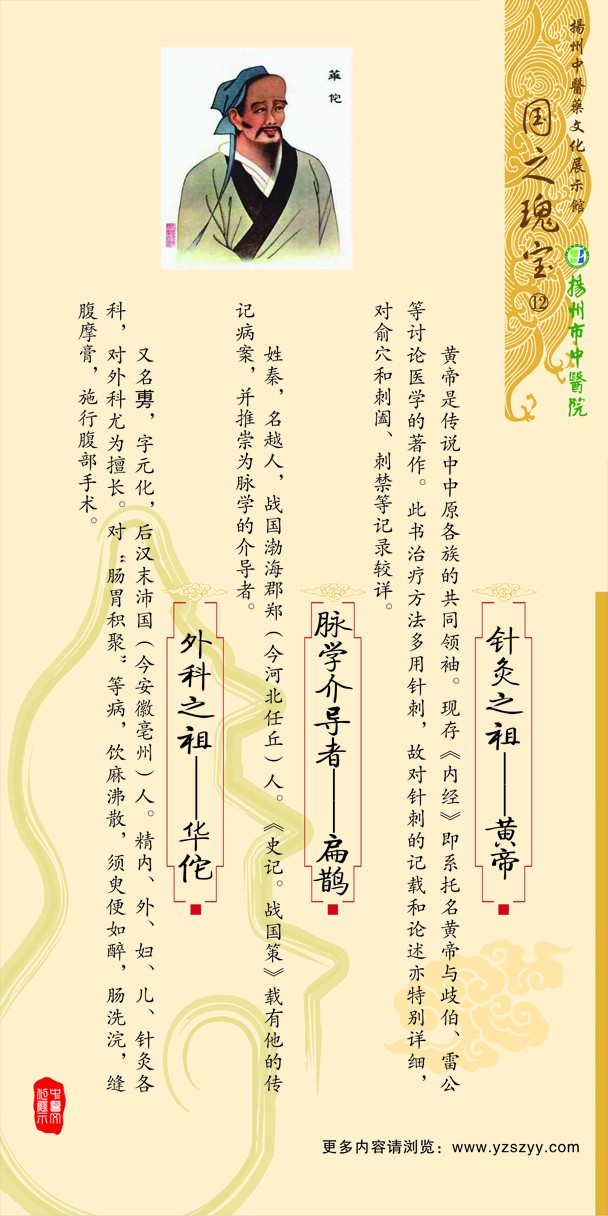 揚州中醫藥文化展示館
国之瑰宝⑫
揚州市中醫院
針灸之祖——黄帝
黄帝是传说中中原各族的共同领袖。现存《内经》即系托名黄帝与歧伯、雷公
等讨论医学的著作。此书治疗方法多用针刺，故对针刺的记载和论述亦特别详细，
对俞穴和刺阖、刺禁等记录较详。
脉学介导者——扁鹊
姓秦，名越人，战国渤海郡郑（今河北任丘）人。《史记。战国策》载有他的传
记病案，并推崇为脉学的介导者。
外科之祖——华佗
又名旉，字元化，后汉末沛国（今安徽亳州）人。精内、外、妇、儿、针灸各
科，对外科尤为擅长。对“肠胃积聚”等病，饮麻沸散，须臾便如醉，肠洗浣，缝
腹摩膏，施行腹部手术。
華佗
更多内容请浏览：www.yzszyy.com